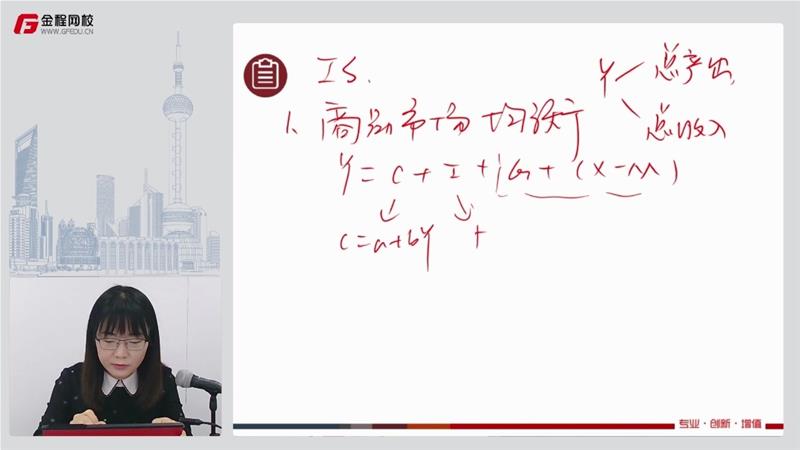 金程网校
WWW.GFEDU.CN
IS.
Y 总产出
总收入
1、商品市场均衡
Y = C + I + G + (X-M)
C=a+bY
专业·创新·增值